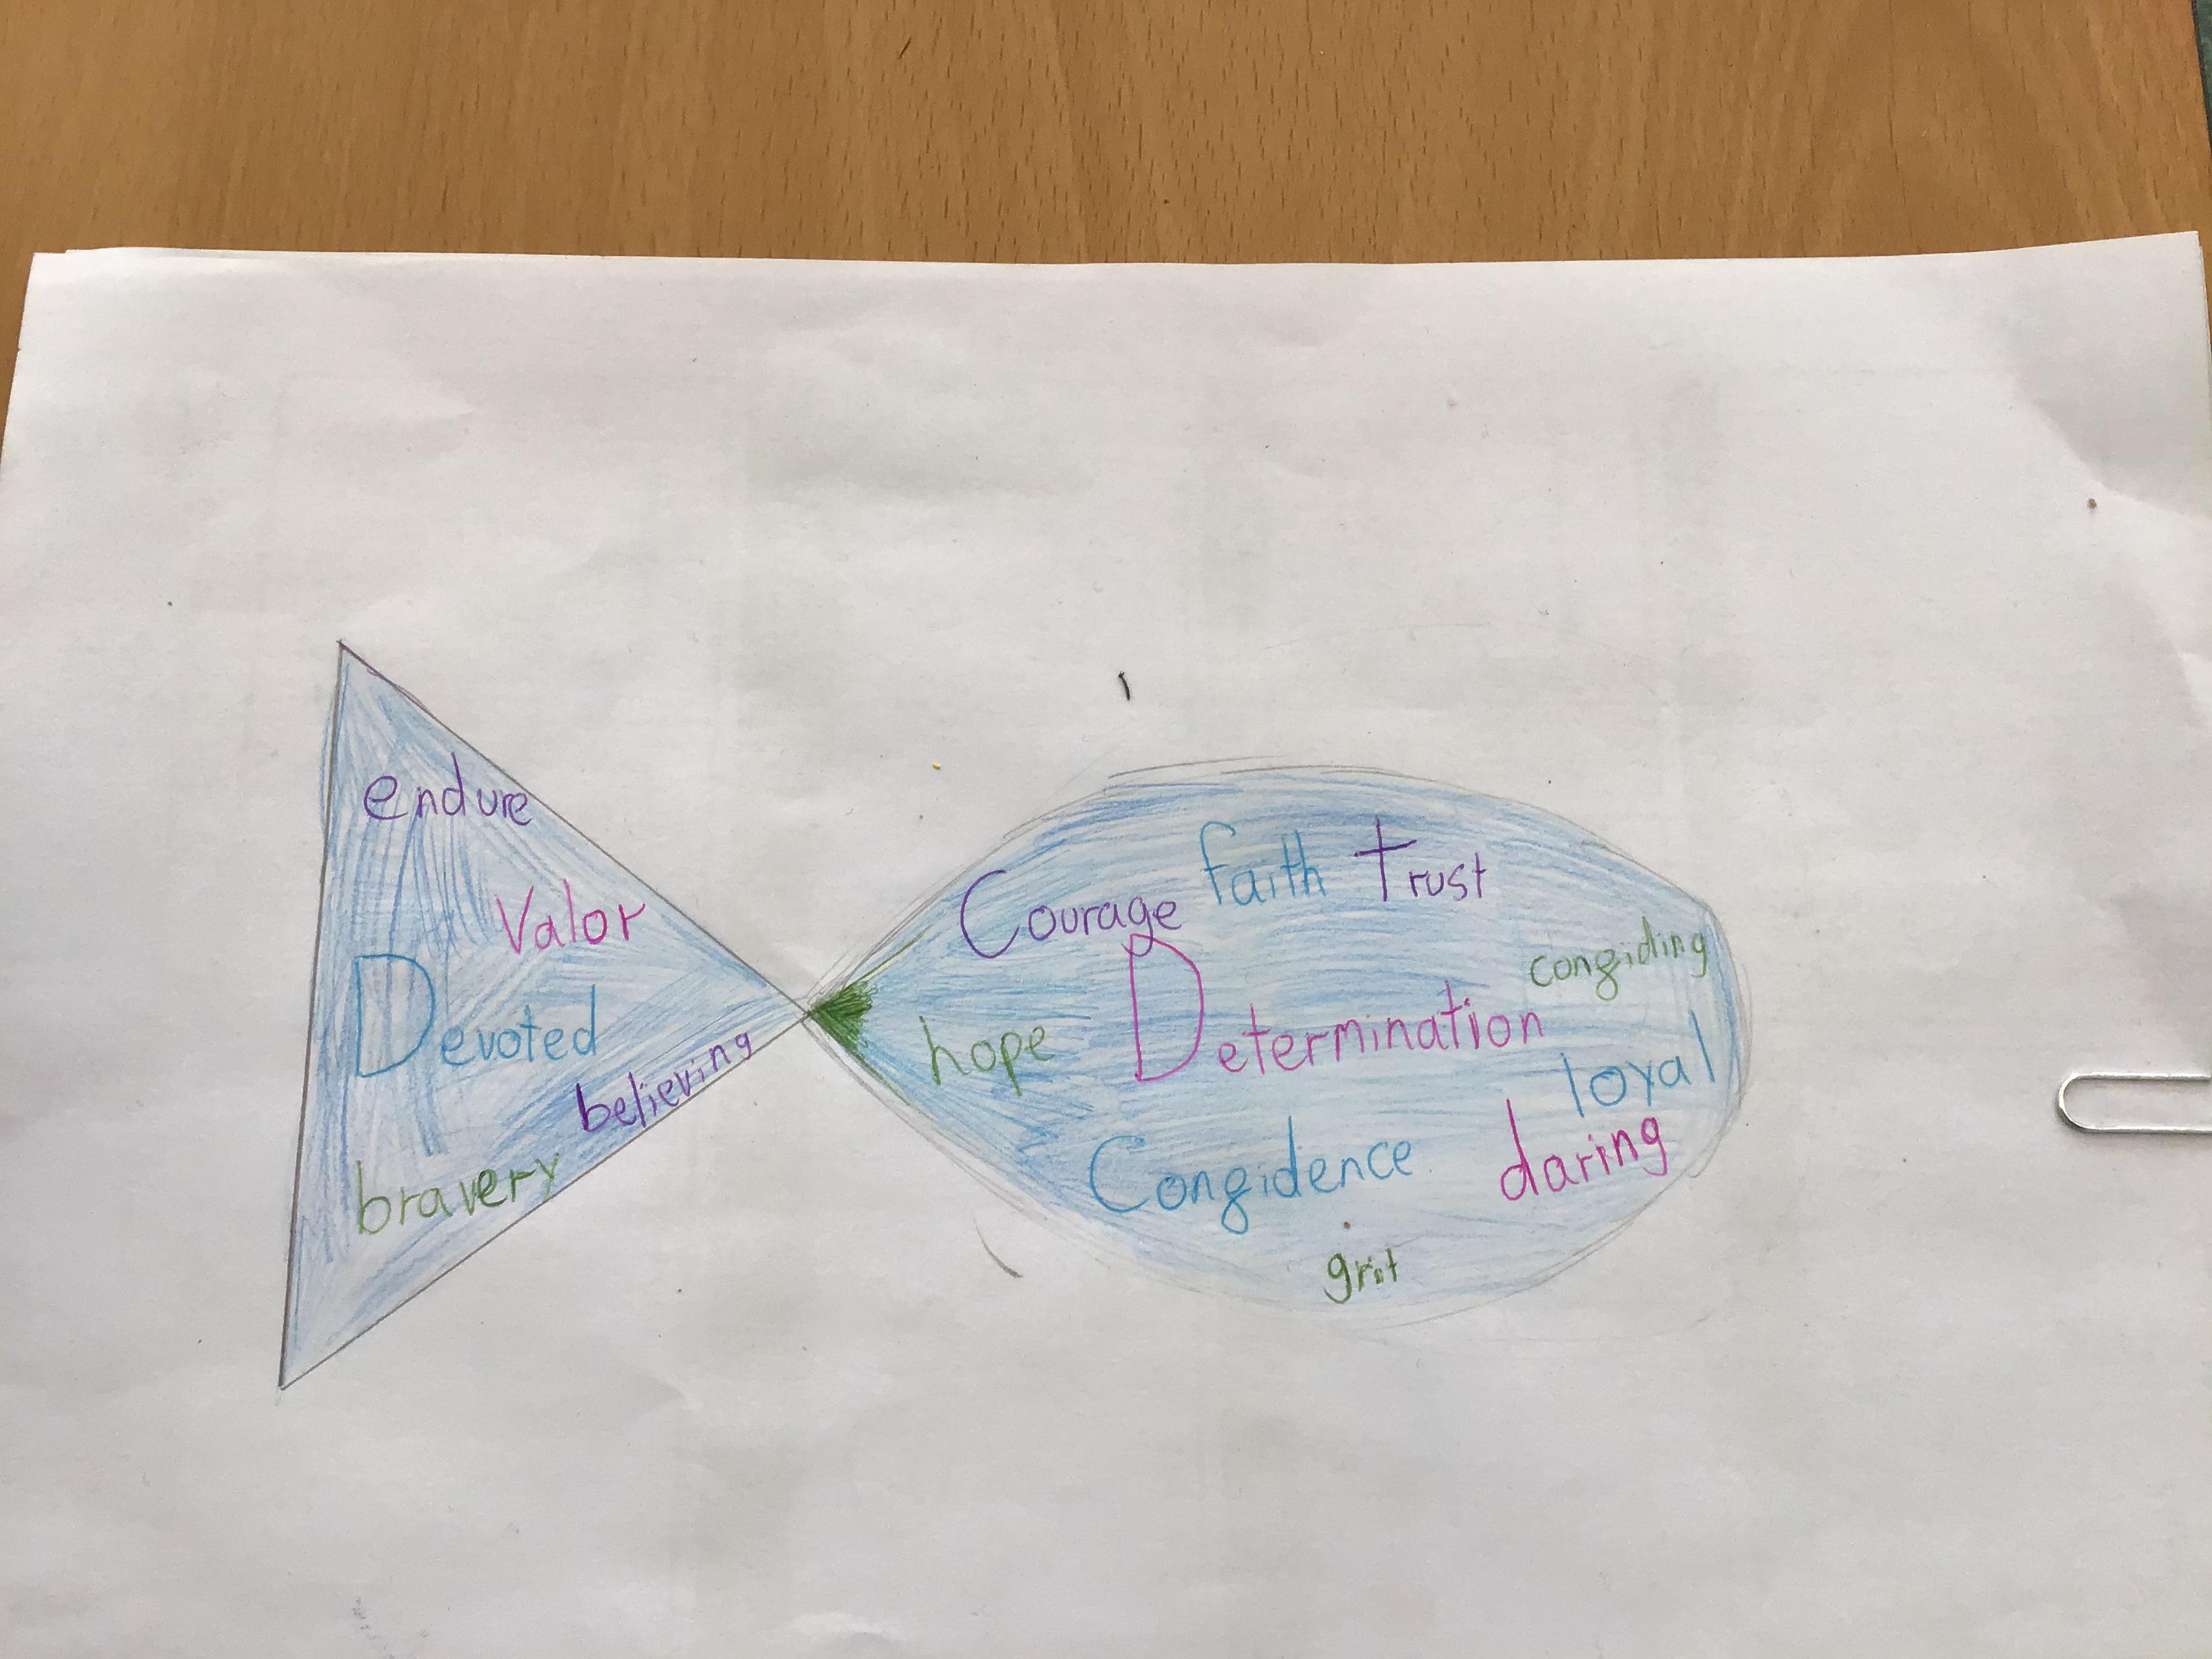 endure
Valor
Devoted
believing
bravery
Courage faith trust
congiding
hope Determination
loyal
Congidence daring
grit